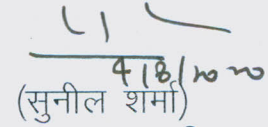 4/8/2020
(सुनील शर्मा)